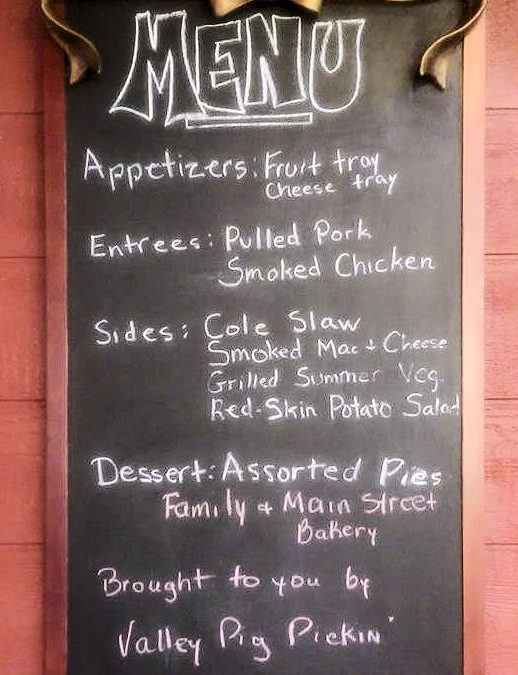 MENU
Appetizers: Fruit tray
Cheese tray
Entrees: Pulled Pork
Smoked Chicken
Sides: Cole Slaw
Smoked Mac + Cheese
Grilled Summer Veg.
Red-Skin Potato Salad
Dessert: Assorted Pies
Family + Main Street
Bakery
Brought to you by
Valley Pig Pickin'